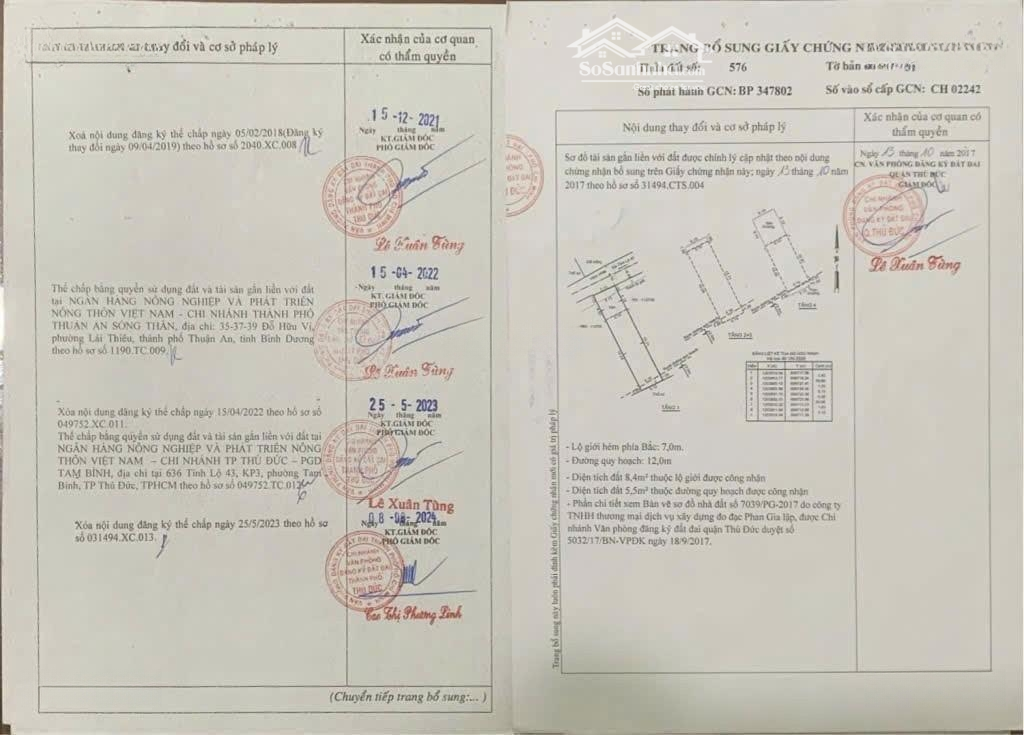 thay đổi và cơ sở pháp lý
Xác nhận của cơ quan
có thẩm quyền
Xoá nội dung đăng ký thế chấp ngày 05/02/2018(Đăng ký
thay đổi ngày 09/04/2019) theo hồ sơ số 2040.XC.008
15-12-2021
Ngày tháng năm
KT.GIÁM ĐỐC
PHÓ GIÁM ĐỐC
CHI NHÁNH
VĂN PHÒNG
ĐĂNG KÝ ĐẤT ĐAI
THÀNH PHỐ
THỦ ĐỨC
Lê Xuân Tùng
Thế chấp bằng quyền sử dụng đất và tài sản gắn liền với đất
tại NGÂN HÀNG NÔNG NGHIỆP VÀ PHÁT TRIỂN
NÔNG THÔN VIỆT NAM - CHI NHÁNH THÀNH PHỐ
THUẬN AN SÓNG THẦN, địa chỉ: 35-37-39 Đỗ Hữu Vị,
phường Lái Thiêu, thành phố Thuận An, tỉnh Bình Dương
theo hồ sơ số 1190.TC.009
15-04-2022
Ngày tháng năm
KT.GIÁM ĐỐC
PHÓ GIÁM ĐỐC
Lê Xuân Tùng
Xóa nội dung đăng ký thế chấp ngày 15/04/2022 theo hồ sơ số
049752.XC.011.
Thế chấp bằng quyền sử dụng đất và tài sản gắn liền với đất tại
NGÂN HÀNG NÔNG NGHIỆP VÀ PHÁT TRIỂN NÔNG
THÔN VIỆT NAM – CHI NHÁNH TP THỦ ĐỨC – PGD
TAM BÌNH, địa chỉ tại 636 Tỉnh Lộ 43, KP3, phường Tam
Bình, TP Thủ Đức, TPHCM theo hồ sơ số 049752.TC.012
25-5-2023
Ngày tháng năm
KT.GIÁM ĐỐC
PHÓ GIÁM ĐỐC
Lê Xuân Tùng
Xóa nội dung đăng ký thế chấp ngày 25/5/2023 theo hồ sơ
số 031494.XC.013.
08-08-2024
Ngày tháng năm
KT.GIÁM ĐỐC
PHÓ GIÁM ĐỐC
CHI NHÁNH
VĂN PHÒNG
ĐĂNG KÝ ĐẤT ĐAI
THÀNH PHỐ
THỦ ĐỨC
Cao Thị Phương Linh
(Chuyển tiếp trang bổ sung:... )
SoSanhNha
TRANG BỔ SUNG GIẤY CHỨNG N
Thửa đất số: 576
Tờ bản
Số phát hành GCN: BP 347802
Số vào sổ cấp GCN: CH 02242
Nội dung thay đổi và cơ sở pháp lý
Xác nhận của cơ quan có
thẩm quyền
Sơ đồ tài sản gắn liền với đất được chỉnh lý cập nhật theo nội dung
chứng nhận bổ sung trên Giấy chứng nhận này; ngày 13 tháng 10 năm
2017 theo hồ sơ số 31494.CTS.004
Ngày 13 tháng 10 năm 2017
CN. VĂN PHÒNG ĐĂNG KÝ ĐẤT ĐAI
QUẬN THỦ ĐỨC
GIÁM ĐỐC
CHI NHÁNH
VĂN PHÒNG
ĐĂNG KÝ ĐẤT ĐAI
Q.THỦ ĐỨC
Lê Xuân Tùng
TẦNG 4
TẦNG 2+3
TẦNG 1
- Lộ giới hẻm phía Bắc: 7,0m.
- Đường quy hoạch: 12,0m
- Diện tích đất 8,4m² thuộc lộ giới được công nhận
- Diện tích đất 5,5m² thuộc đường quy hoạch được công nhận
- Phần chi tiết xem Bản vẽ sơ đồ nhà đất số 7039/PG-2017 do công ty
TNHH thương mại dịch vụ xây dựng đo đạc Phan Gia lập, được Chi
nhánh Văn phòng đăng ký đất đai quận Thủ Đức duyệt số
5032/17/BN-VPĐK ngày 18/9/2017.
Trang bổ sung này luôn phải đính kèm Giấy chứng nhận mới có giá trị pháp lý